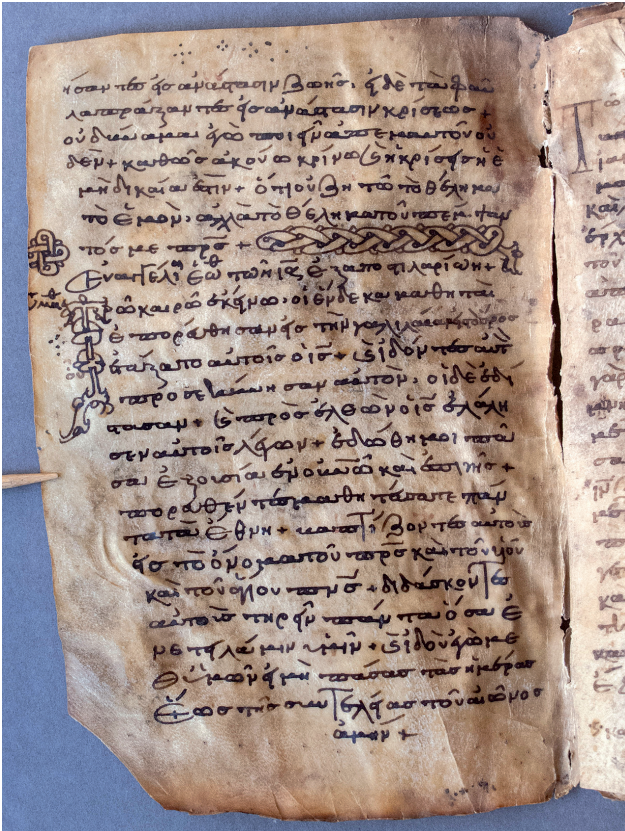 ήσαντες εἰς ἀνάστασιν ζωῆς, οἱ δὲ τὰ φαῦ
λα πράξαντες εἰς ἀνάστασιν κρίσεως +
οὐ δύναμαι ἐγὼ ποιεῖν ἀπ ἐμαυτοῦ οὐ
δέν + καθὼς ἀκούω κρίνω ϗ ἡ κρίσις ἡ ἐ
μὴ δικαία ἐστίν + ὅτι οὐ ζητῶ τὸ θέλημα
τὸ ἐμὸν, ἀλλὰ τὸ θέλημα τοῦ πέμψαν
τός με πρς +
Εὐαγγέλι ἑωθ ἐξαποστιλαρίων +
Τῶ καιρῶ ἐκείνω, οἱ ἕνδεκα μαθηταὶ
ἐπορεύθησαν εἰς τὴν γαλιλαίαν εἰς τὸ ὄρος
οὗ ἐτάξατο αὐτοῖς ὁ ις + ϗ ἰδόντες αὐτ
προσεκύνησαν αὐτὸν, οἱ δὲ ἐδί
στασαν + ϗ προσελθὼν ὁ ις ἐλάλη
σεν αὐτοῖς λέγων + ἐδώθη μοι πᾶ
σα ἐξουσία ἐν οὐνῶ καὶ ἐπὶ γῆς +
πορευθέντες μαθητεύσατε πάν
τα τὰ ἔθνη + βαπτίζοντες αὐτοὺς
εἰς τὸ ὄνομα τοῦ πρς καὶ τοῦ υἱοῦ
καὶ τοῦ ἁγίου πνς + διδάσκοντες
αὐτοὺς τηρεῖν πάντα ὅσα ἐ
νετειλάμην ὑμῖν + ϗ ἰδοὺ ἐγὼ με
θ ὑμῶν εἰμὶ πάσας τὰς ἡμέρας
ἕως τῆς συντελείας τοῦ αἰῶνος
ἀμήν +